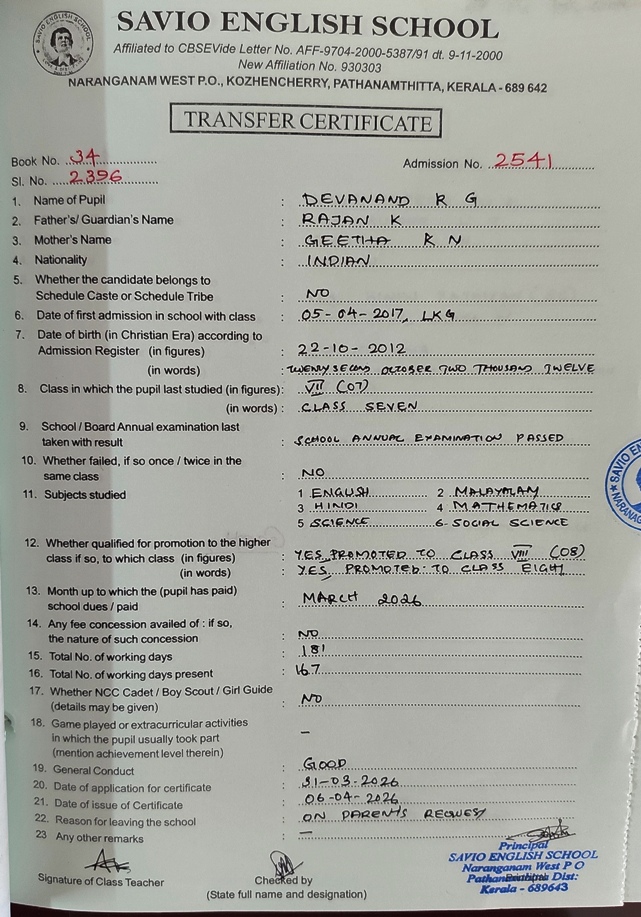 SAVIO ENGLISH SCHOOL
Affiliated to CBSEVide Letter No. AFF-9704-2000-5387/91 dt. 9-11-2000
New Affiliation No. 930303
NARANGANAM WEST P.O., KOZHENCHERRY, PATHANAMTHITTA, KERALA - 689 642
TRANSFER CERTIFICATE
Book No. 34
Admission No. 2541
Sl. No. 2396
1. Name of Pupil : DEVANAND R G
2. Father's/ Guardian's Name : RAJAN K
3. Mother's Name : GEETHA K N
4. Nationality : INDIAN
5. Whether the candidate belongs to
Schedule Caste or Schedule Tribe : NO
6. Date of first admission in school with class : 05-04-2017, LKG
7. Date of birth (in Christian Era) according to
Admission Register (in figures) : 22-10-2012
(in words) : TWENTY SECOND OCTOBER TWO THOUSAND TWELVE
8. Class in which the pupil last studied (in figures) : VII (07)
(in words) : CLASS SEVEN
9. School / Board Annual examination last
taken with result : SCHOOL ANNUAL EXAMINATION PASSED
10. Whether failed, if so once / twice in the
same class : NO
11. Subjects studied : 1 ENGLISH 2 MALAYALAM
3 HINDI 4 MATHEMATICS
5 SCIENCE 6 SOCIAL SCIENCE
12. Whether qualified for promotion to the higher
class if so, to which class (in figures) : YES, PROMOTED TO CLASS VIII (08)
(in words) : YES, PROMOTED TO CLASS EIGHT
13. Month up to which the (pupil has paid)
school dues / paid : MARCH 2026
14. Any fee concession availed of : if so,
the nature of such concession : NO
15. Total No. of working days : 181
16. Total No. of working days present : 167
17. Whether NCC Cadet / Boy Scout / Girl Guide
(details may be given) : NO
18. Game played or extracurricular activities
in which the pupil usually took part : –
(mention achievement level therein)
19. General Conduct : GOOD
20. Date of application for certificate : 31-03-2026
21. Date of issue of Certificate : 06-04-2026
22. Reason for leaving the school : ON PARENTS REQUEST
23 Any other remarks : –
Signature of Class Teacher
Checked by
(State full name and designation)
Principal
SAVIO ENGLISH SCHOOL
Naranganam West P O
Dist:
Kerala - 689643